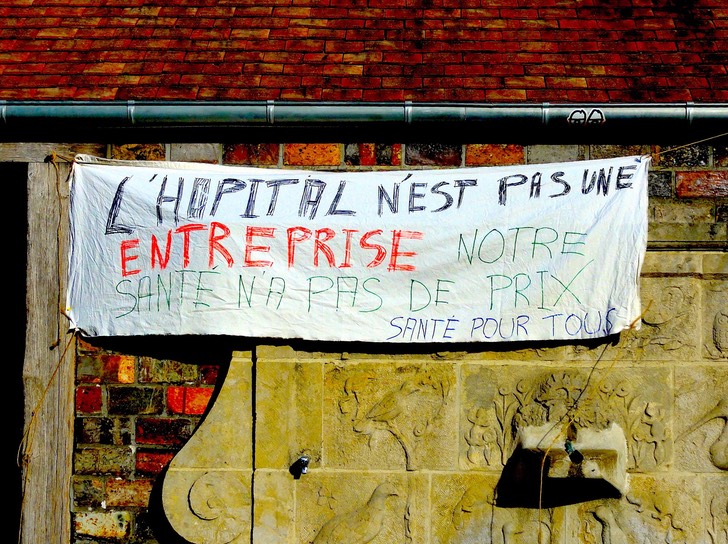 L'HOPITAL N'EST PAS UNE
ENTREPRISE NOTRE
SANTÉ N'A PAS DE PRIX
SANTÉ POUR TOUS